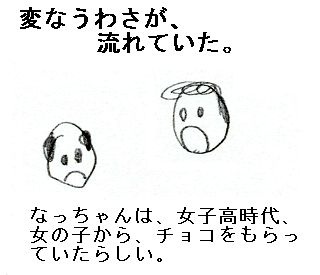 変なうわさが、
流れていた。
なっちゃんは、女子高時代、
女の子から、チョコをもらっ
ていたらしい。